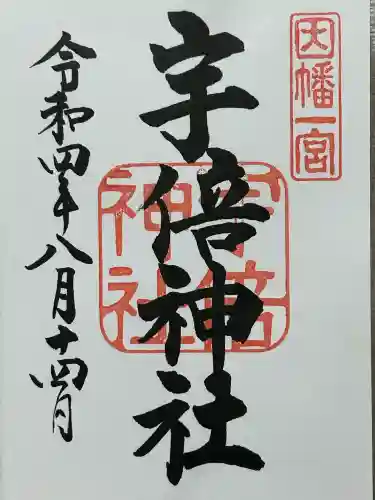 因幡一宮
宇倍神社
宇倍神社
令和四年八月十四日